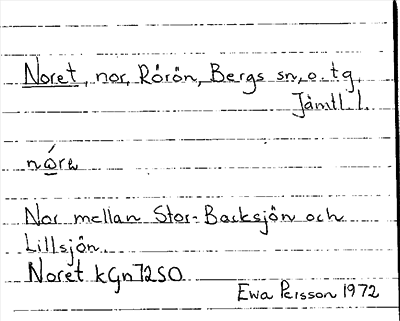 Noret, nor, Rörön, Bergs sn, o. tg,
Jämtl. l.
nó̲re
Nor mellan Stor-Backsjön och
Lillsjön.
Noret kGn72SO
Ewa Persson 1972